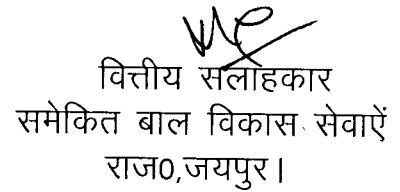 वित्तीय सलाहकार
समेकित बाल विकास सेवाऐं
राज0,जयपुर।